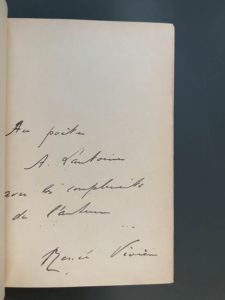 Au poète
A. Lantoine
avec les compliments
de l'auteur
Renée Vivien